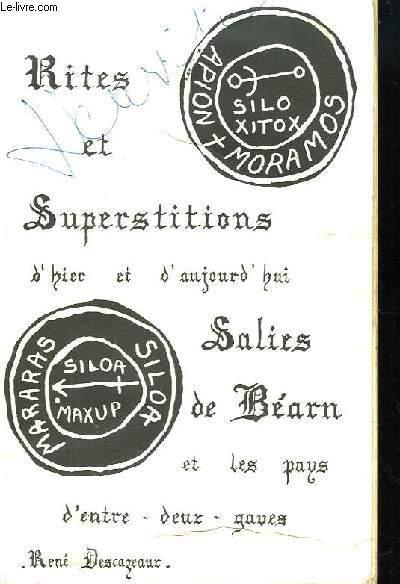 Le-Livre.com
Rites
et
Superstitions
d'hier et d'aujourd'hui
APION + MORAMOS
SILO
XITOX
Salies
de Béarn
et les pays
d'entre - deux - gaves
MARARAS SILOA
SILOA
MAXUP
. René Descazeaux .